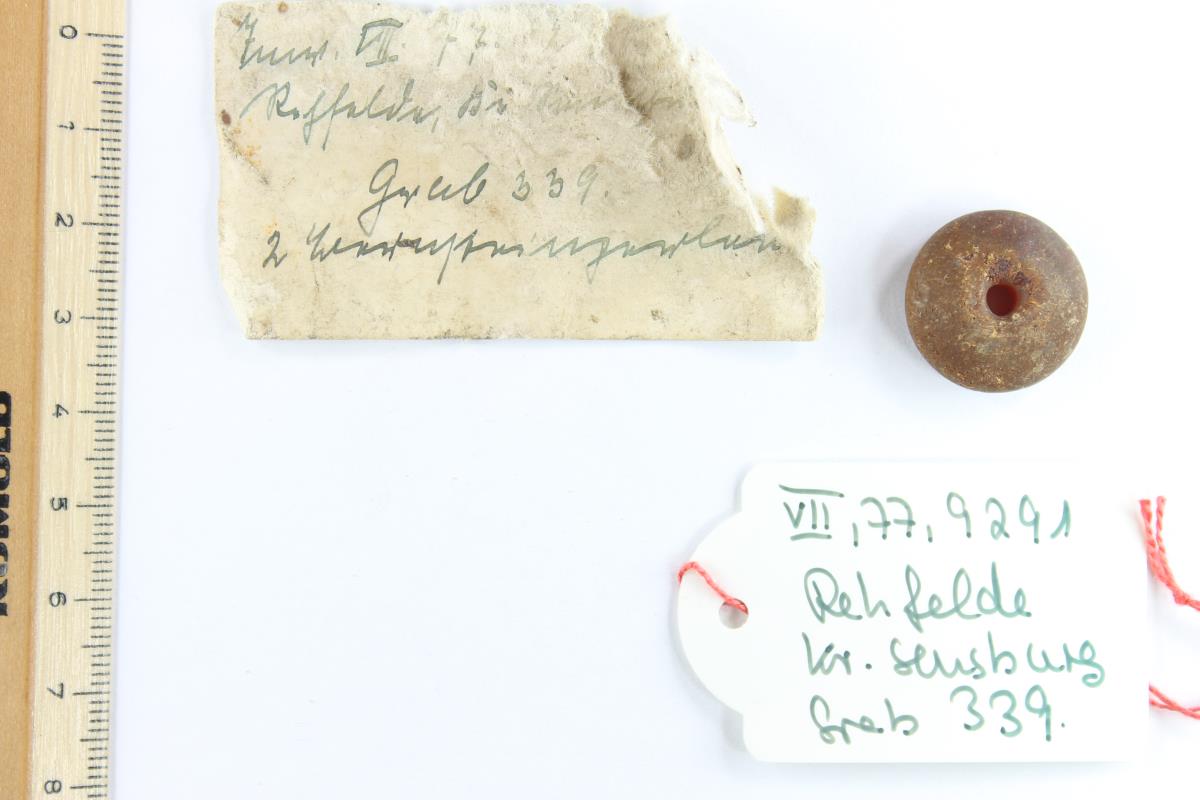 Inv. VII. 77.
Rehfelde,
Grab 339.
2 Bernsteinperlen
VII, 77, 9291
Rehfelde
Kr. Sensburg
Grab 339.
0
1
2
3
4
5
6
7
8